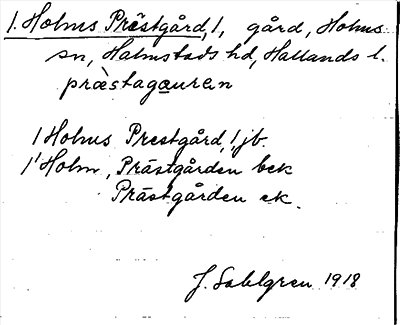 1. Holms Prästgård, 1, gård, Holms
sn, Halmstads hd, Hallands l.
præ̀stagǫuręn
1 Holms Prestgård, 1, jb.
1 Holm, Prästgården bek
Prästgården ek.
J. Sahlgren 1918